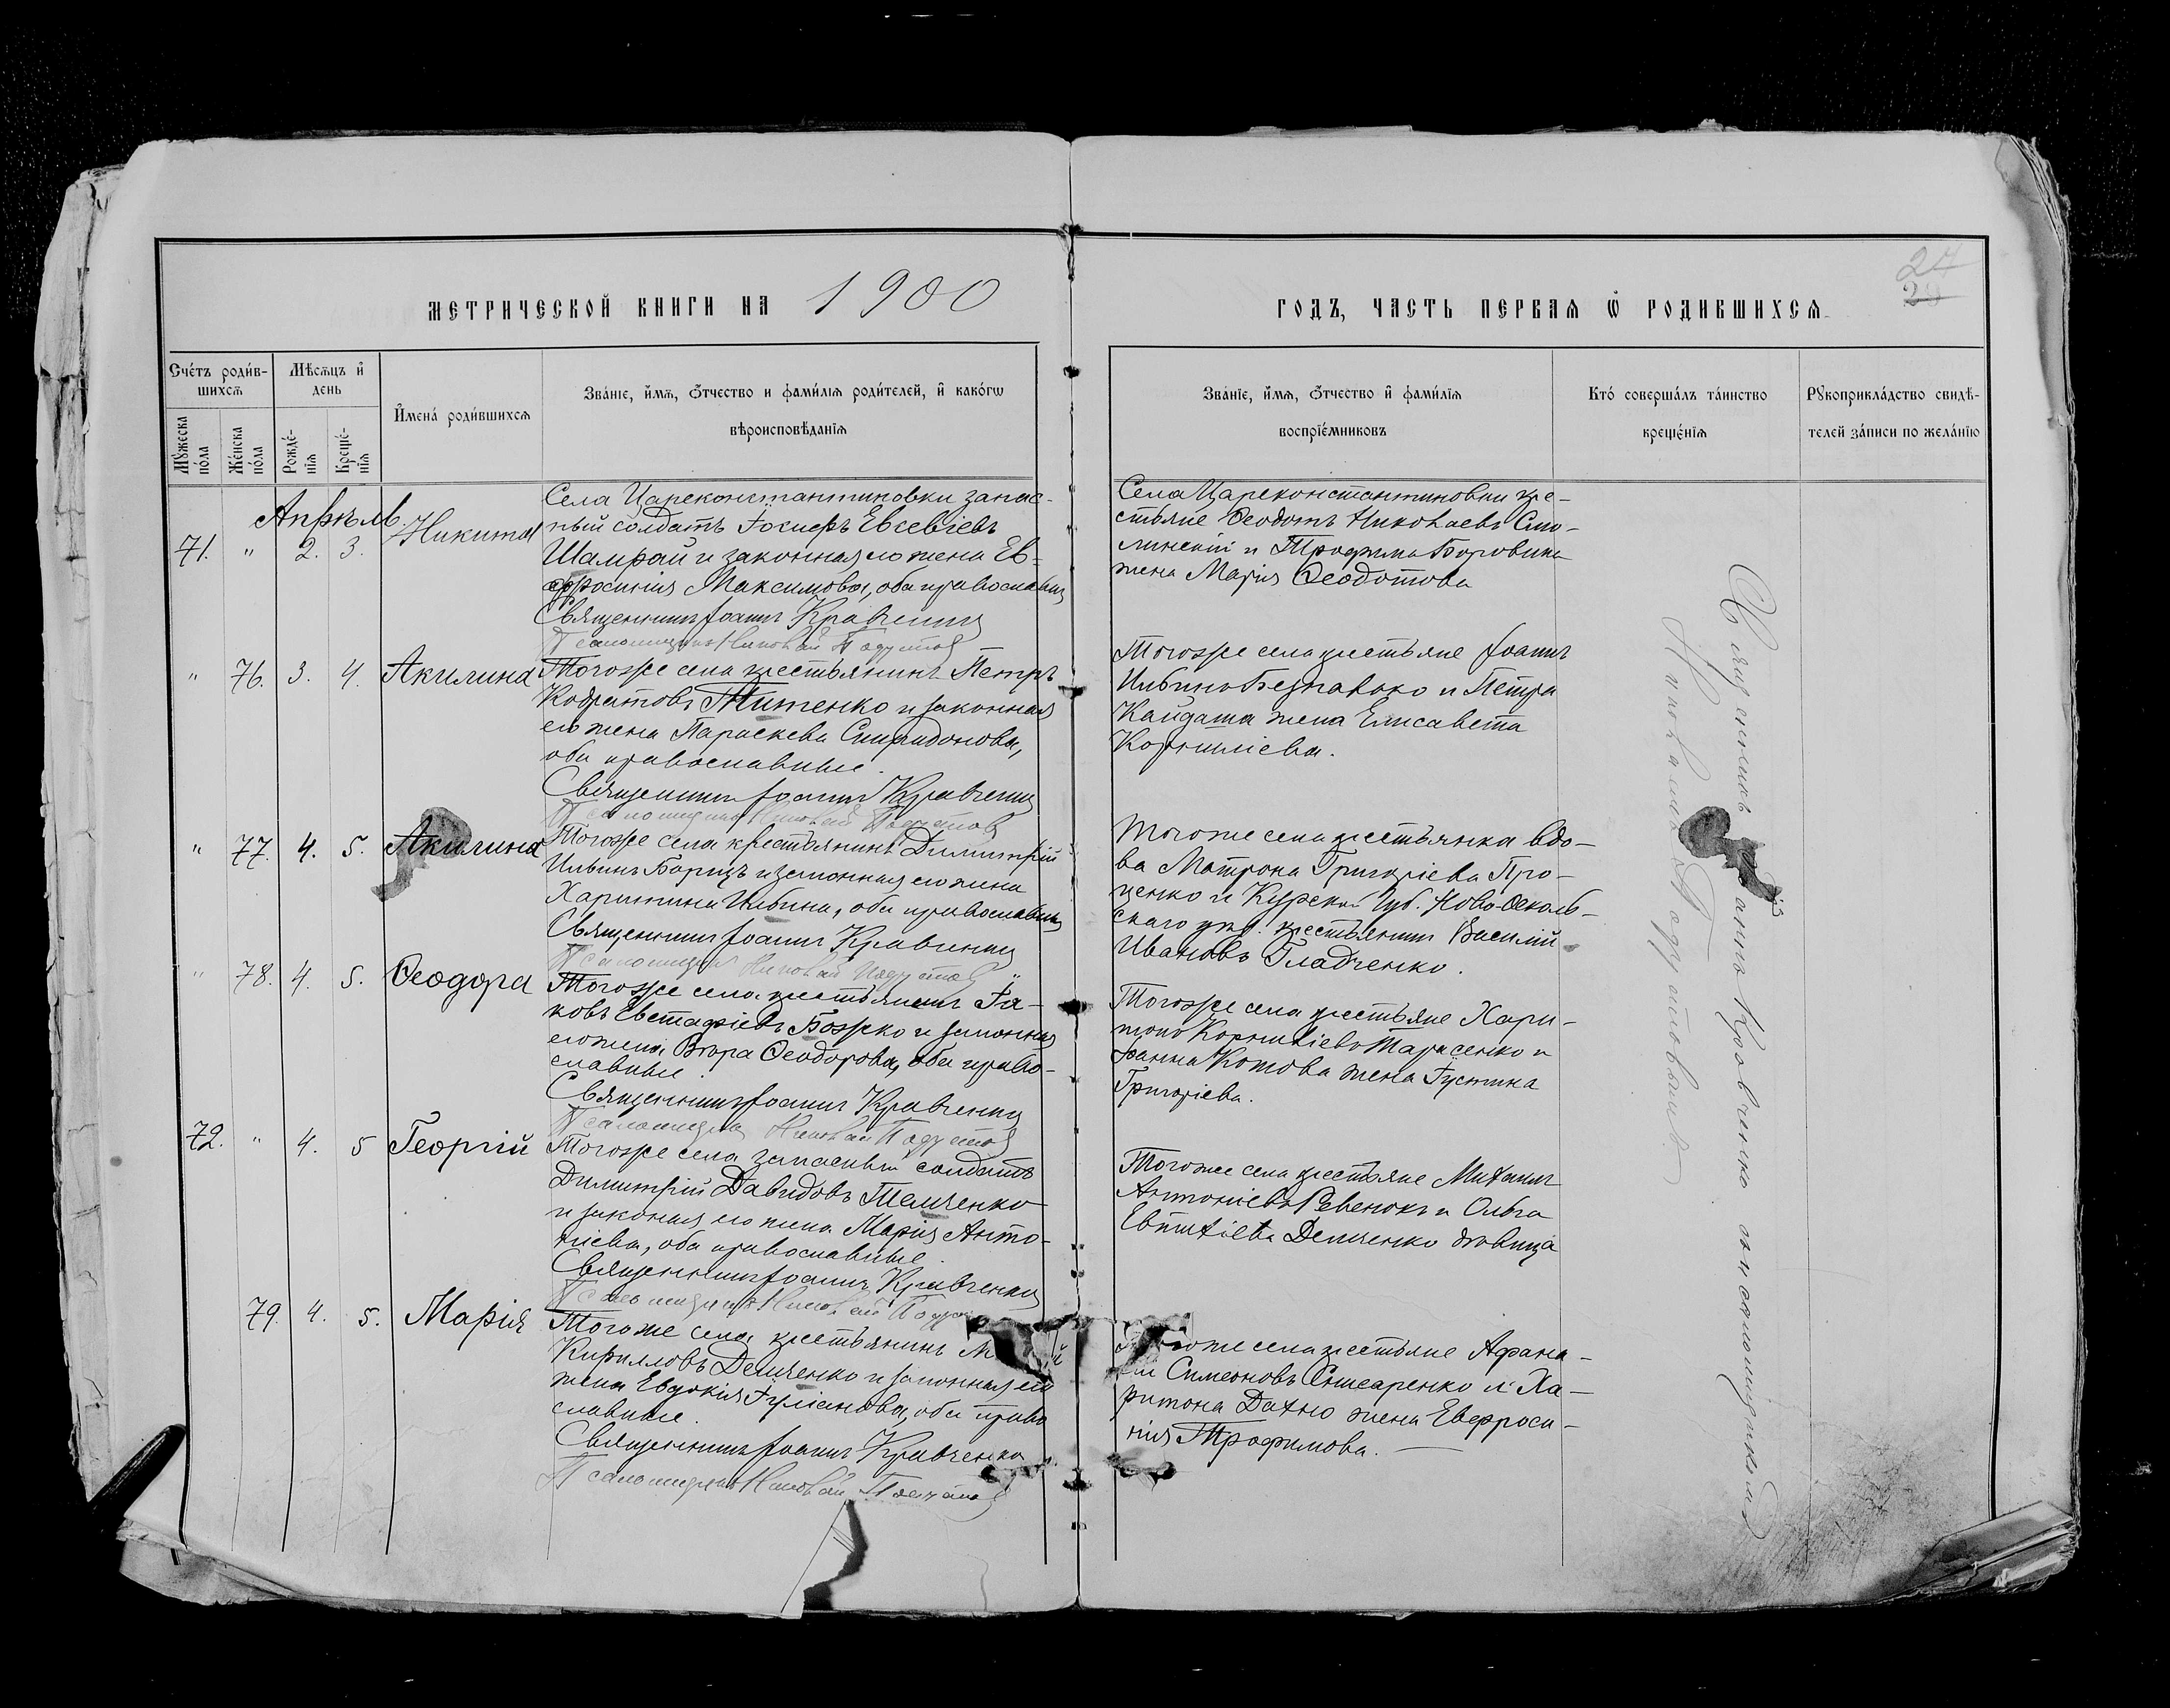 24
29
МЕТРИЧЕСКОЙ КНИГИ НА 1900
ГОДЪ, ЧАСТЬ ПЕРВАЯ Ѿ РОДИВШИХСЯ
Сче́тъ роди́в-
шихсѧ
Мѣсѧцъ и҆
день
И҆мена́ роди́вшихсѧ
Зва́нїе, и҆́мѧ, ѻ҆́тчество и фами́лїѧ роди́телей, и҆ како́гѡ
вѣроисповѣ́данїѧ
Мꙋ́жеска
по́ла
Же́нска
по́ла
Рожде́-
нїѧ
Креще́-
нїѧ
Зва́нїе, и҆́мѧ, ѻ҆́тчество и҆ фами́лїѧ
воспрїе́мниковъ
Кто́ соверша́лъ та́инство
креще́нїѧ
Рꙋкоприкла́дство свидѣ́-
телей за́писи по жела́нїю
Апрѣль
71. " 2. 3. Никита
Села Цареконстантиновки запас-
ный солдатъ Іосифъ Евсевіевъ
Шамрай и законная его жена Ев-
фросинія Максимова, оба православны
Священникъ Іоаннъ Кравченко
Псаломщикъ Николай
Села Цареконстантиновки кре-
стьяне Ѳеодотъ Николаевъ Смо-
линскій и Трофима Боровика
жена Марія Ѳеодотова
" 76. 3. 4. Акилина
Тогоже села крестьянинъ Петръ
Кодратовъ Титенко и законная
его жена Параскева Спиридонова,
оба православные.
Священникъ Іоаннъ Кравченко
Псаломщикъ Николай
Тогоже села крестьяне Іоаннъ
Ильинъ Безпалько и Петра
Кайдаша жена Елисавета
Корниліева.
" 77. 4. 5. Акилина
Тогоже села крестьянинъ Димитрій
Ильинъ Борищъ и законная его жена
Харитина Ильина, оба православны
Священникъ Іоаннъ Кравченко
Псаломщикъ Николай
Тогоже села крестьянка вдо-
ва Матрона Григоріева Про-
ценко и Курской Губ. Ново-Осколь-
скаго уѣз. крестьянинъ Василій
Ивановъ Гладченко.
" 78. 4. 5. Ѳеодора
Тогоже села крестьянинъ Іа-
ковъ Евстафіевъ Божко и законная
его жена Вѣра Ѳеодорова, оба право-
славные.
Священникъ Іоаннъ Кравченко
Псаломщикъ Николай
Тогоже села крестьяне Хари-
тонъ Корниліевъ Тарасенко и
Іоанна Котова жена Іустина
Григоріева.
72. " 4. 5 Георгій
Тогоже села запасный солдатъ
Димитрій Давидовъ Темченко
и законная его жена Марія Анто-
ніева, оба православные.
Священникъ Іоаннъ Кравченко
Псаломщикъ Николай
Тогоже села крестьяне Михаилъ
Антоніевъ Ревенокъ и Ольга
Евтихіева Демченко дѣвица
79. 4. 5. Марія
Тогоже села крестьянинъ
Кирилловъ Демченко и законная его
жена Евдокія Іуліанова, оба право
славные.
Священникъ Іоаннъ Кравченко
Псаломщикъ Николай
тогоже села крестьяне Афана-
сій Симеоновъ Слисаренко и Ха-
ритона Дахно жена Евфроси-
нія Трофимова.
Священникъ Іоаннъ Кравченко съ псаломщикомъ
Николаемъ